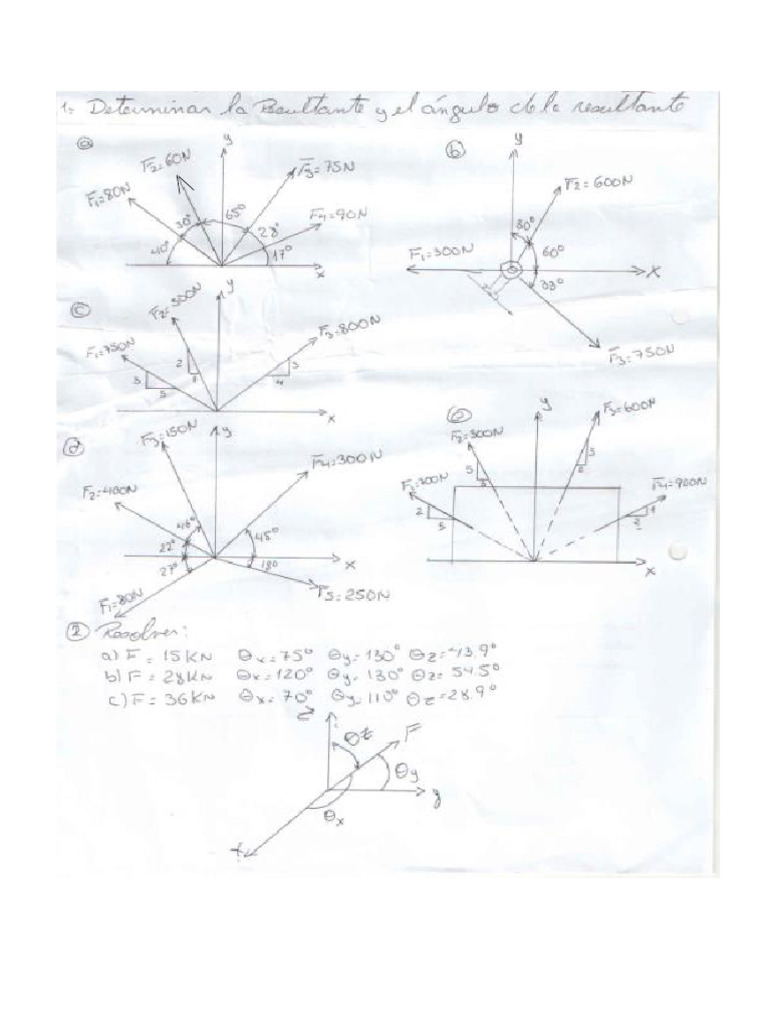 1. Determinar la Resultante y el ángulo de la resultante
a
y
F1=80N
F2=60N
F3=75N
F4=90N
40°
30°
65°
28°
17°
x
b
y
F2=600N
F1=300N
30°
60°
x
F3=750N
c
y
F1=750N
F2=500N
F3=800N
3
5
2
1
3
4
x
d
y
F3=150N
F4=300N
F2=400N
46°
22°
27°
45°
x
F1=80N
F5=250N
e
y
F3=600N
F2=300N
F4=900N
2
5
5
x
2 Resolver:
a) F = 15KN θx=75° θy=130° θz=43.9°
b) F = 28KN θx=120° θy=130° θz=54.5°
c) F = 36KN θx=70° θy=110° θz=28.9°
z
θz
F
θy
y
θx
x